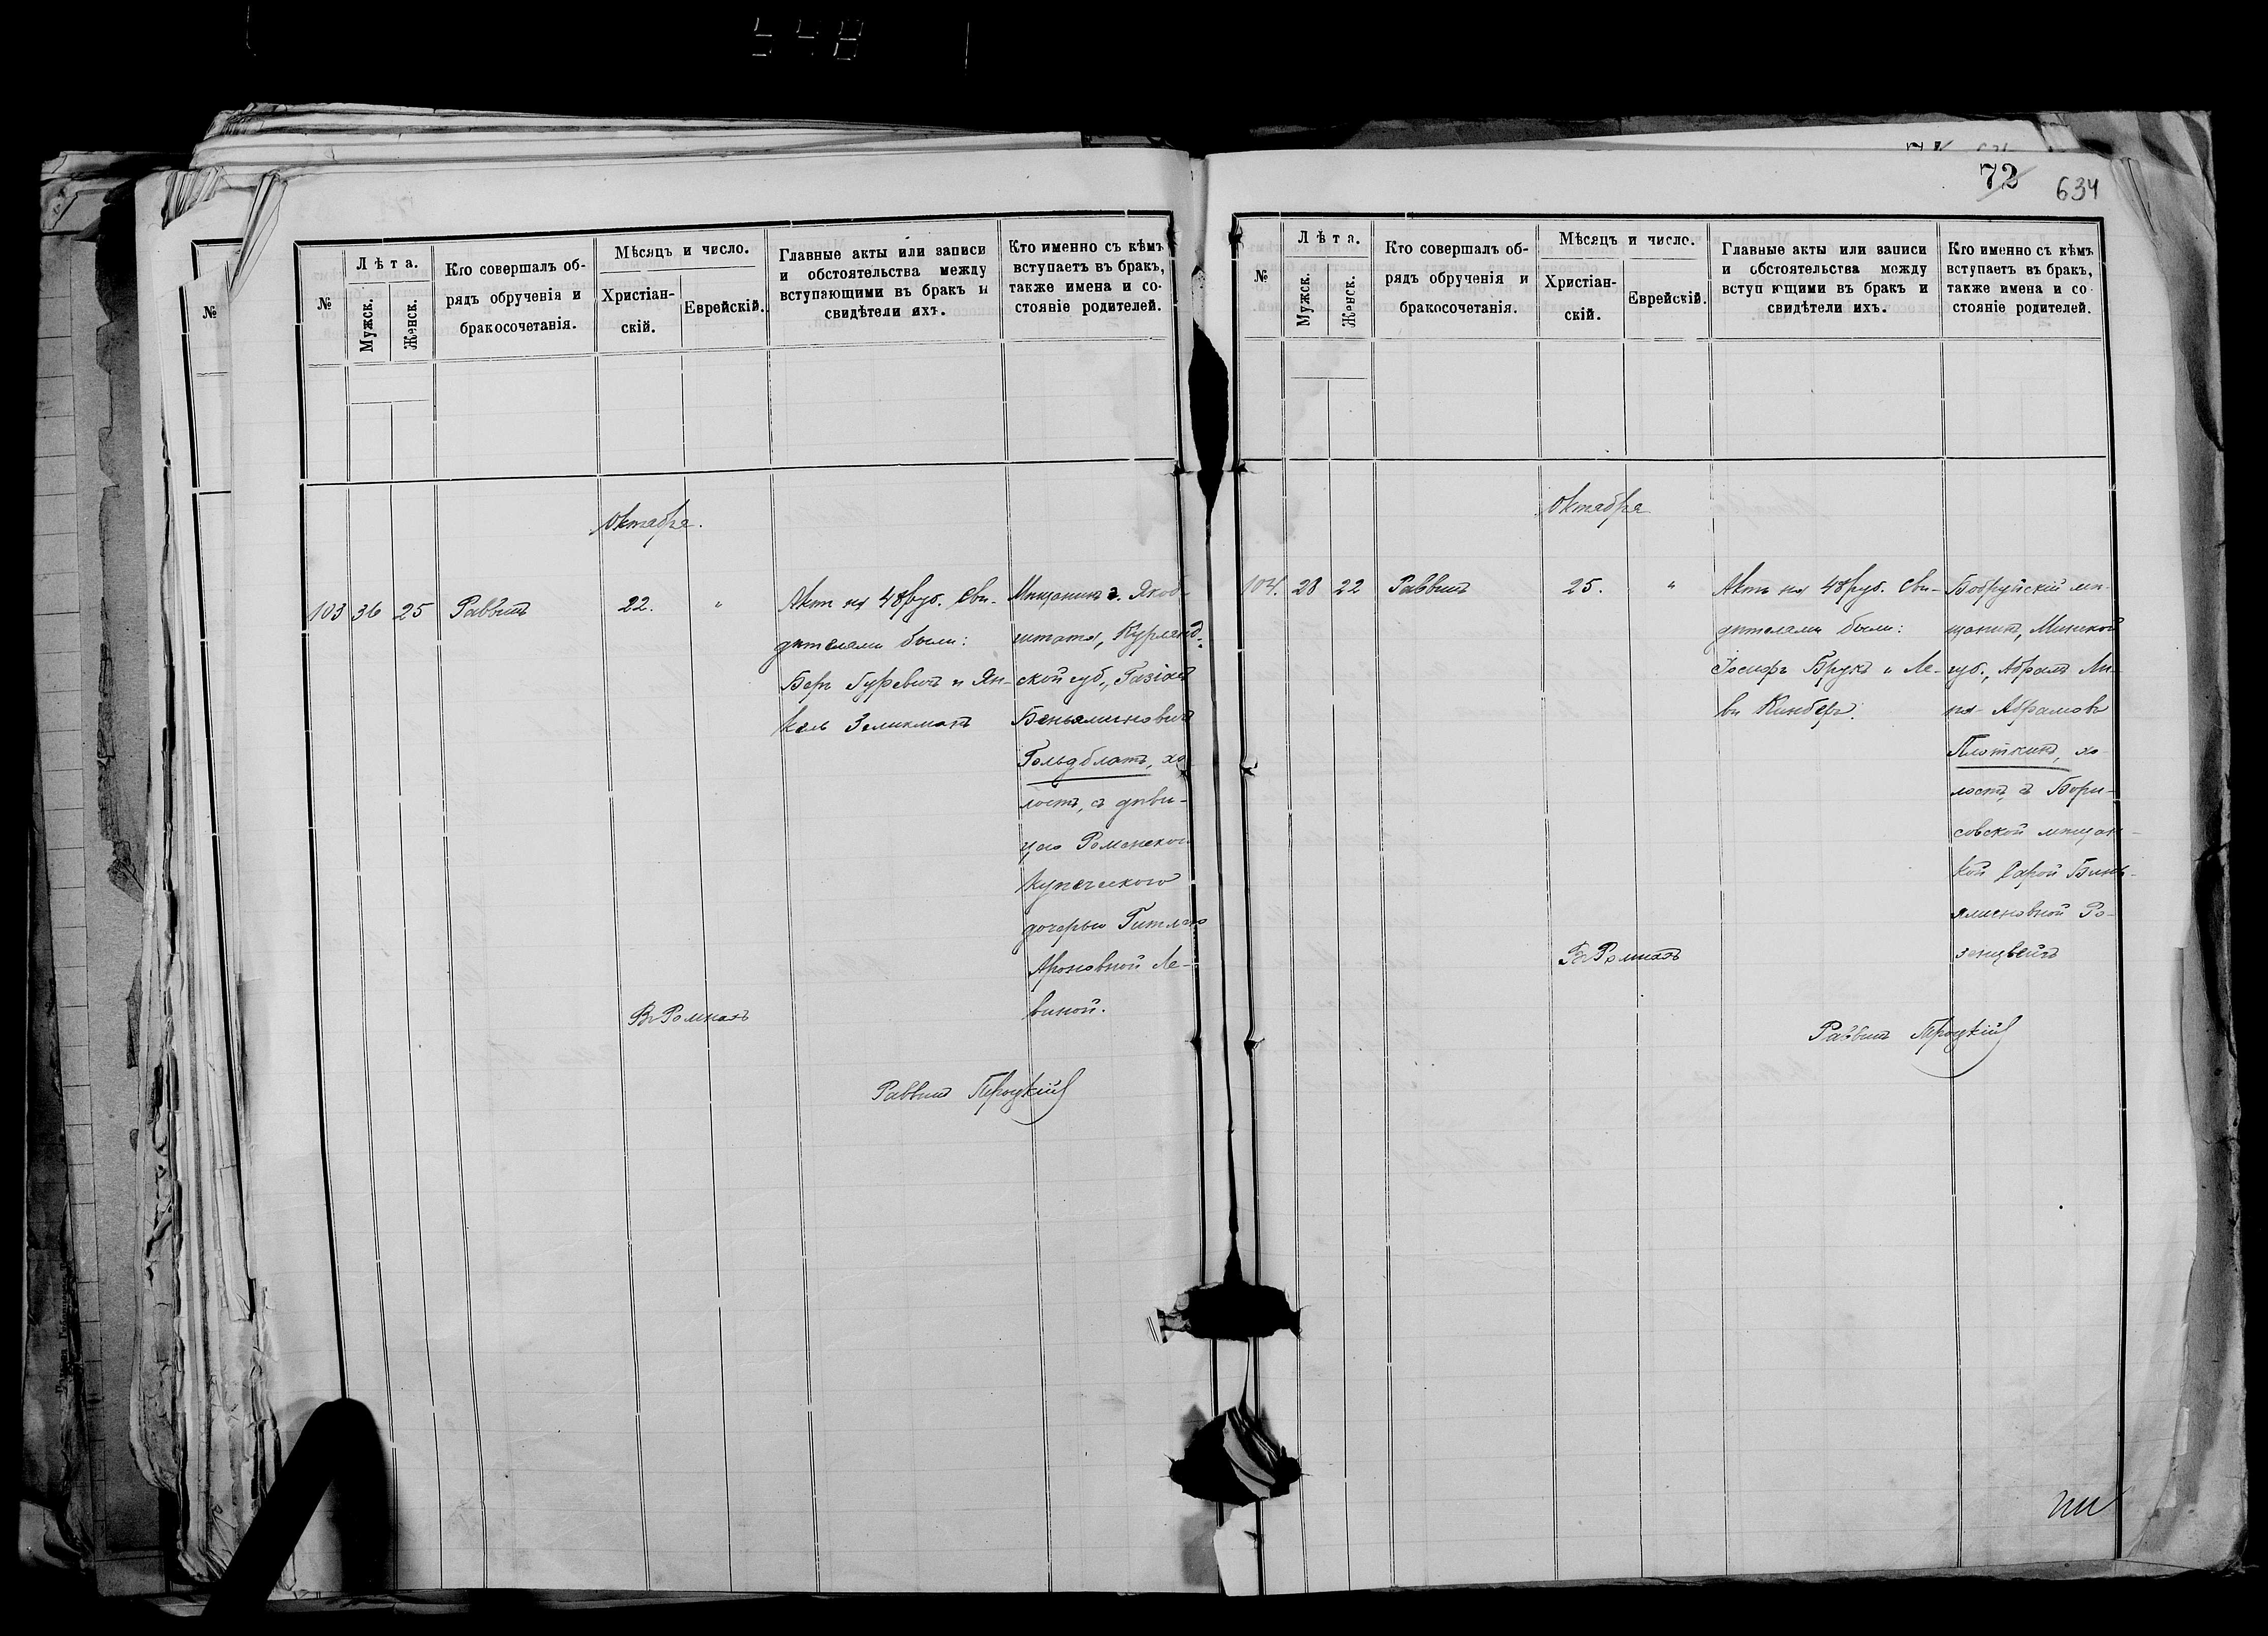 548
№
№
Лѣта.
Мужск.
Женск.
Кто совершалъ об-
рядъ обрученія и
бракосочетанія.
Мѣсяцъ и число.
Христіан-
скій.
Еврейскій.
Главные акты или записи
и обстоятельства между
вступающими въ бракъ и
свидѣтели ихъ.
Кто именно съ кѣмъ
вступаетъ въ бракъ,
также имена и со-
стояніе родителей.
Октября.
103 36 25 Раввинъ 22. "
Актъ на 48 руб. Сви-
дѣтелями были:
Беръ Гуревичъ и Ян-
кель Зеликманъ
Мѣщанинъ г. Якоб-
штата, Курлянд-
ской губ.,
Беньяминовичъ
Гольдблатъ, хо
лостъ, съ дѣви-
цею Роменскою
купеческою
дочерью Гитлею
Ароновной Ле-
виной.
Въ Ромнахъ
Раввинъ Троцкій
72
634
№
Лѣта.
Мужск.
Женск.
Кто совершалъ об-
рядъ обрученія и
бракосочетанія.
Мѣсяцъ и число.
Христіан-
скій.
Еврейскій.
Главные акты или записи
и обстоятельства между
вступ ющими въ бракъ и
свидѣтели ихъ.
Кто именно съ кѣмъ
вступаетъ въ бракъ,
также имена и со
стояніе родителей.
Октября
104. 28 22 Раввинъ 25. "
Актъ на 48 руб. Сви-
дѣтелями были:
Іосифъ Брукъ и Ле-
ви Кинберъ.
Бобруйскій мѣ-
щанинъ, Минской
губ., Абрамъ
Абрамовъ
Плоткинъ, хо-
лостъ, съ Бори-
совской мѣщан-
кой Сарой Бинь-
яминовной Ро-
зенцвейгъ
Въ Ромнахъ
Раввинъ Троцкій